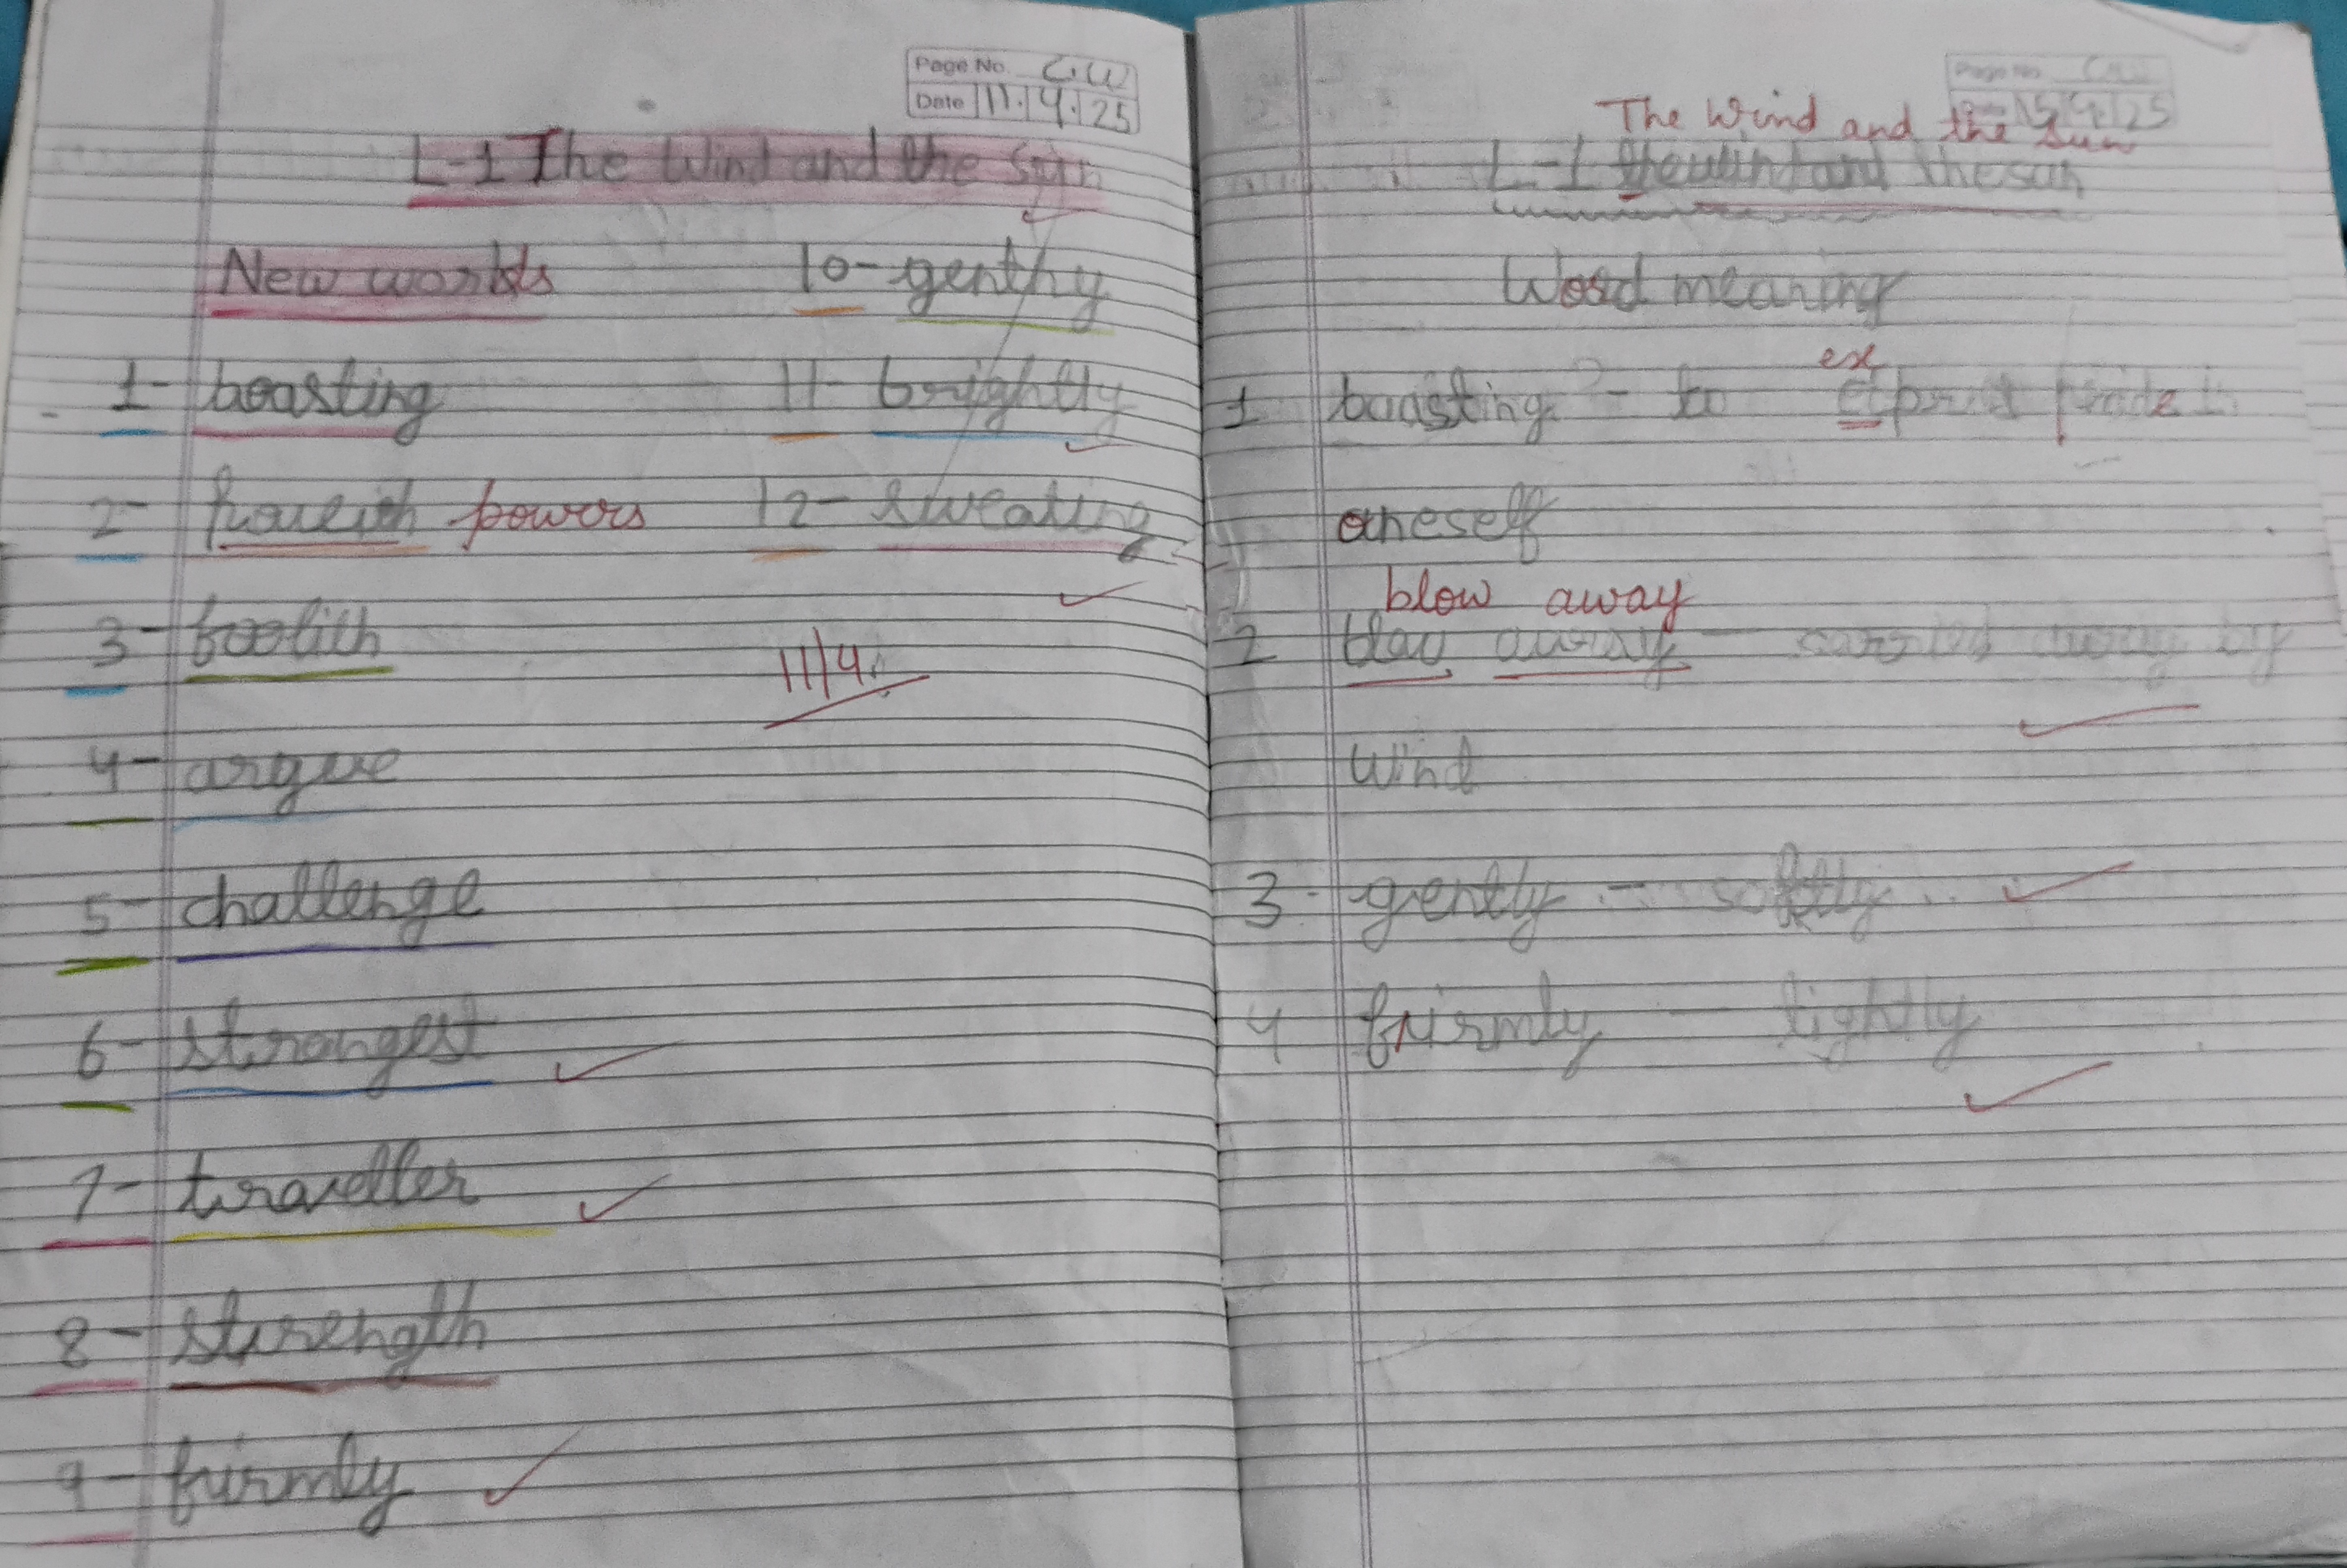 Page No. C.W
Date 11.4.25
L-1 The Wind and the Sun
New words
1- boasting
2- powers
3- foolish
4- argue
5- challenge
6- strongest
7- traveller
8- strength
9- firmly
10- genthy
11- brightly
12- sweating
11/4
Page No. C.W
15/4/25
The Wind and the Sun
L-1 the wind and the sun
Word meaning
ex
1 boasting - to pride in
oneself
blow away
2 blow away - away by
wind
3- gently - softly
4 firmly - tightly